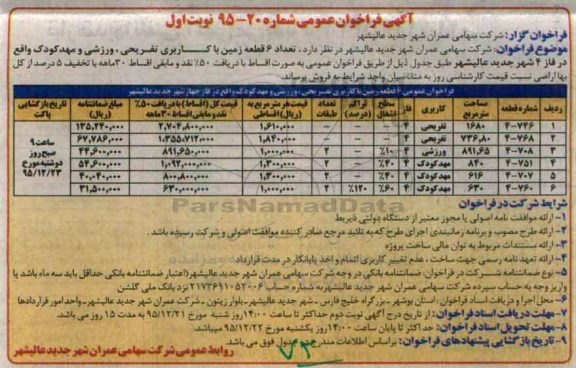 آگهی فراخوان عمومی شماره ۲۰-۹۵ نوبت اول
فراخوان گزار: شرکت سهامی عمران شهر جدید عالیشهر
موضوع فراخوان: شرکت سهامی عمران شهر جدید عالیشهر در نظر دارد ، تعداد ۶ قطعه زمین با کاربری تفریحی ، ورزشی و مهدکودک واقع
در فاز ۴ شهر جدید عالیشهر طبق جدول ذیل از طریق فراخوان عمومی به صورت اقساط با دریافت ۵۰٪ نقد و مابقی اقساط ۳۰ ماهه با تخفیف ۵ درصد از کل
بها اراضی نسبت قیمت کارشناسی روز به متقاضیان واجد شرایط به فروش برساند.
فراخوان عمومی ۶ قطعه زمین با کاربری تفریحی ، ورزشی و مهدکودک واقع در فاز چهار شهر جدید عالیشهر
ردیف شماره قطعه مساحت مترمربع کاربری فاز سطح اشغال تراکم (درصد) تعداد طبقات قیمت هر مترمربع به ریال (اقساطی) قیمت کل (اقساط) با دریافت ۵۰٪ نقد و مابقی اقساط ۳۰ ماهه مبلغ ضمانتنامه (ریال) تاریخ بازگشایی پاکت
۱ ۷۴۶-۴ ۱۶۸۰ تفریحی ۴ ۱,۶۱۰,۰۰۰ ۲,۷۰۴,۸۰۰,۰۰۰ ۱۳۵,۲۴۰,۰۰۰
۲ ۷۶۸-۴ ۷۳۶,۸۰ تفریحی ۴ ۱,۸۴۰,۰۰۰ ۱,۳۵۵,۷۱۲,۰۰۰ ۶۷,۷۸۶,۰۰۰
۳ ۷۰۸-۴ ۸۹۱,۶۵ ورزشی ۴ ۱۰٪ ۱,۰۰۰,۰۰۰ ۸۹۱,۶۵۰,۰۰۰ ۴۴,۶۰۰,۰۰۰
۴ ۷۵۱-۴ ۸۴۰ مهدکودک ۴ ۴۰٪ ۱,۳۰۰,۰۰۰ ۱,۰۹۲,۰۰۰,۰۰۰ ۵۴,۶۰۰,۰۰۰
۵ ۷۰۷-۴ ۶۱۶ مهدکودک ۴ ۴۰٪ ۱,۳۰۰,۰۰۰ ۸۰۰,۸۰۰,۰۰۰ ۴۰,۰۴۰,۰۰۰
۶ ۷۶۰-۴ ۶۳۰ مهدکودک ۴ ۶۰٪ ۱۲۰٪ ۱,۰۰۰,۰۰۰ ۶۳۰,۰۰۰,۰۰۰ ۳۱,۵۰۰,۰۰۰
ساعت ۹ صبح روز دوشنبه مورخ ۹۵/۱۲/۲۳
شرایط شرکت در فراخوان
۱- ارائه موافقت نامه اصولی یا مجوز معتبر از دستگاه دولتی ذیربط
۲- ارائه طرح مصوب و برنامه زمانبندی اجرای طرح که به تائید مرجع صادر کننده موافقت اصولی و شرکت رسیده باشد .
۳- ارائه مستندات مربوط به توان مالی ساخت پروژه
۴- ارائه تعهدنامه رسمی جهت ساخت ، عدم تغییر کاربری اتمام و اخذ پایانکار در مدت قرارداد
۵- نوع ضمانتنامه شرکت در فراخوان: ضمانتنامه بانکی در وجه شرکت سهامی عمران شهر جدید عالیشهر (اعتبار ضمانتنامه بانکی حداقل باید سه ماه باشد یا
واریز وجه به حساب سپرده شرکت سهامی عمران شهر جدید عالیشهر به شماره حساب ۲۱۷۳۶۹۱۰۵۲۰۰۶ نزد بانک ملی گلشن
۶- محل اجرا و دریافت اسناد فراخوان: استان بوشهر - بزرگراه خلیج فارس - شهر جدید عالیشهر - بلوار زیتون - شرکت عمران شهر جدید عالیشهر - واحد امور قراردادها
۷- مهلت دریافت اسناد فراخوان: از تاریخ درج آگهی نوبت دوم حداکثر تا ساعت ۱۴:۰۰ روز شنبه مورخ ۹۵/۱۲/۲۱ به مدت ۱۵ روز می باشد.
۸- مهلت تحویل اسناد فراخوان: حد اکثر تا پایان ساعت ۱۴:۰۰ روز یکشنبه مورخ ۹۵/۱۲/۲۲ میباشد.
۹- تاریخ بازگشایی پیشنهادهای فراخوان: براساس اطلاعات مندرج در جدول فوق می باشد.
روابط عمومی شرکت سهامی عمران شهر جدید عالیشهر
ParsNamadData